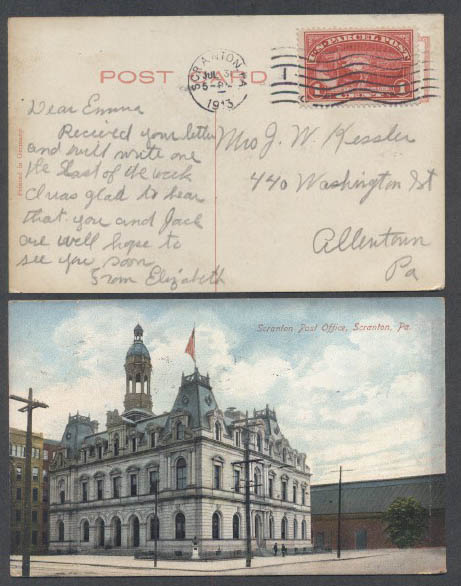 POST CARD
SCRANTON, PA
JUL 3
5-PM
1913
U.S. PARCEL POST
1
1
Printed in Germany
Dear Emma
Received your letter
and will write one
the last of the week
I was glad to hear
that you and Jack
are well hope to
see you soon
From Elizabeth
Mrs J. W. Kessler
440 Washington St
Allentown
Pa
Scranton Post Office, Scranton, Pa.